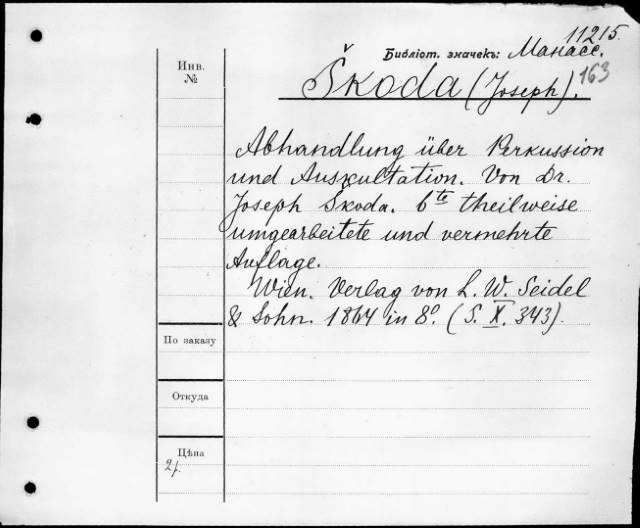 11215.
Библіот. значекъ: Манасс.
163
Инв.
№
Škoda (Joseph).
Abhandlung über Perkussion
und Auskultation. Von Dr.
Joseph Škoda. 6te theilweise
umgearbeitete und vermehrte
Auflage.
Wien. Verlag von L. W. Seidel
& Sohn. 1864 in 8º. (S. X. 343).
По заказу
Откуда
Цѣна
2/.